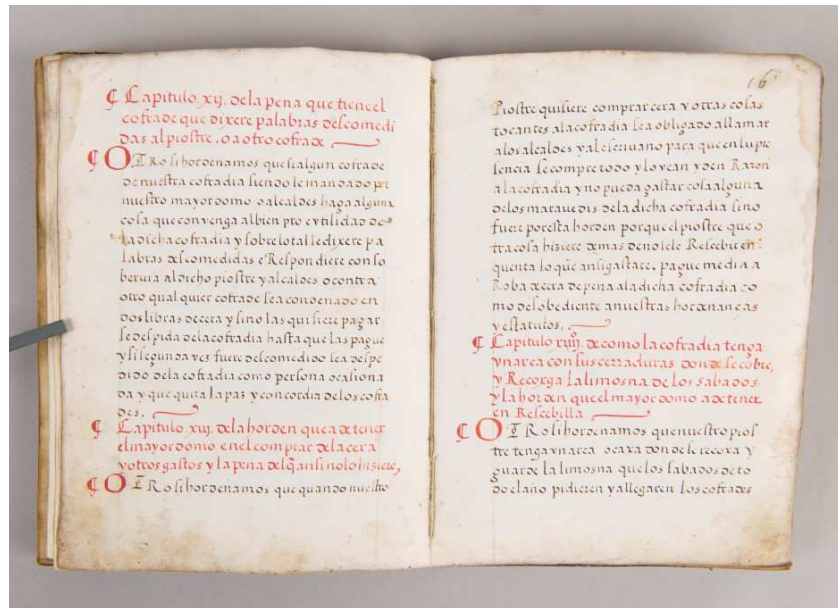 ¶ Capitulo xij. dela pena que tiene el
cofrade que dixere palabras descomedi
das al piostre, o a otro cofrade
¶ OTRosi hordenamos que si algun cofrade
de nuestra cofradia siendole mandado por
nuestro mayordomo o alcaldes haga alguna
cosa que convenga al bien pro e vtilidad de
la dicha cofradia y sobre lo tal le dixere pa
labras descomedidas e Respondiere con so
bervia al dicho piostre y alcaldes o contra
otro qual quier cofrade sea condenado en
dos libras de cera y si no las quisiere pagar
se despida dela cofradia hasta que las pague
y si segunda ves fuere descomedido sea despe
dido dela cofradia como persona ocasiona
da y que quita la paz y concordia delos cofra
des.
¶ Capitulo xiij. dela horden que a de tener
el mayordomo en el comprar dela cera
y otros gastos y la pena del q̃ ansi no lo hiziere,
¶ OTRosi hordenamos que quando nuestro
16
Piostre quisiere comprar cera y otras cosas
tocantes ala cofradia sea obligado allamar
alos alcaldes y al escrivano para que en su pre
sencia se compre todo y lo vean y den Razon
a la cofradia y no pueda gastar cosa alguna
delos maravedis dela dicha cofradia sino
fuere por esta horden porque el piostre que o
tra cosa hiziere demas de no le Rescebir en
quenta lo que ansi gastare, pague media a
Roba de cera de pena ala dicha cofradia co
mo desobediente a nuestras hordenanças
y estatutos.
¶ Capitulo xiiij. de como la cofradia tenga
vn arca con sus cerraduras donde se cobre,
y Recorga la limosna de los sabados
y la horden que el mayordomo a de tener
en Rescebilla
¶ OTRosi hordenamos que nuestro pios
tre tenga vn arca o caxa donde se recoxa y
guarde la limosna que los sabados de to
do el año pidieren y allegaren los cofrades